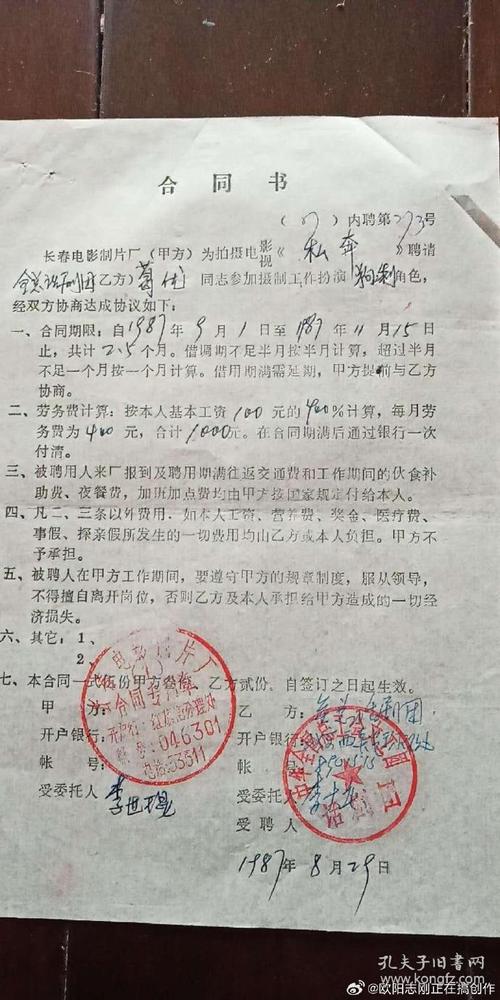 合同书
(87)内聘第273号
长春电影制片厂（甲方）为拍摄电影视《私奔》聘请
全总话剧团（乙方）葛优同志参加摄制工作扮演角色，
经双方协商达成协议如下：
一、合同期限：自1987年9月1日至1987年11月15日
止，共计2.5个月。借调期不足半月按半月计算，超过半月
不足一个月按一个月计算。借用期满需延期，甲方提前与乙方
协商。
二、劳务费计算：按本人基本工资100元的400%计算，每月劳
务费为400元，合计1000元。在合同期满后通过银行一次
付清。
三、被聘用人来厂报到及聘用期满往返交通费和工作期间的伙食补
助费、夜餐费，加班加点费均由甲方按国家规定付给本人。
四、凡二、三条以外费用．如本人工资、营养费、奖金、医疗费、
事假、探亲假所发生的一切费用均由乙方或本人负担。甲方不
予承担。
五、被聘人在甲方工作期间，要遵守甲方的规章制度，服从领导，
不得擅自离开岗位，否则乙方及本人承担给甲方造成的一切经
济损失。
六、其它：1、
2、
七、本合同一式伍份甲方叁份，乙方贰份。自签订之日起生效。
甲方：
开户银行：
帐号：
受委托人
电影制片厂
合同专用章
开户行：红旗街办理处
帐号：046301
电话：53511
乙方：全总话剧团
开户银行：
帐号：
受委托人
受聘人
中华全国总工会文工团
话剧团
1987年8月29日
孔夫子旧书网
@欧阳志刚正在搞创作